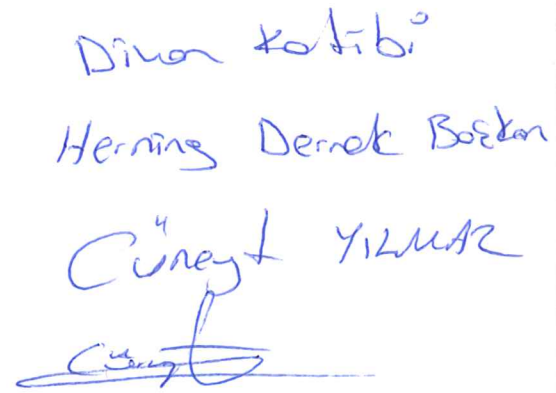 Divan Katibi
Herning Dernek Başkan
Cüneyt YILMAZ
Cüneyt